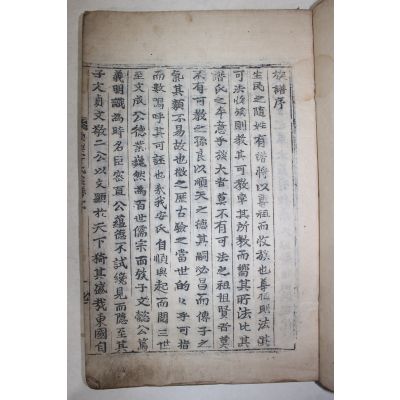 族譜序
生民之随姓有譜將以尊祖而收族也尊祖則法其
可法收族則教其可教率其所教而嚮其所法比其
譜氏之本意乎故大者莫不有可法之祖祖賢者莫
不有可教之孫良以順天之德其嗣必昌而傳子之
氣其類不易故也徵之歷古驗之當世的的乎可指
而數嗚呼其可誣也哉我安氏自順興起而閱二世
至文成公德業巍然為百世儒宗而攷子文懿公篤
義明識為時名臣密直公蘊德不試纔見而隱至其
子文貞文敬二公以文顯於天下猗其盛哉東國自